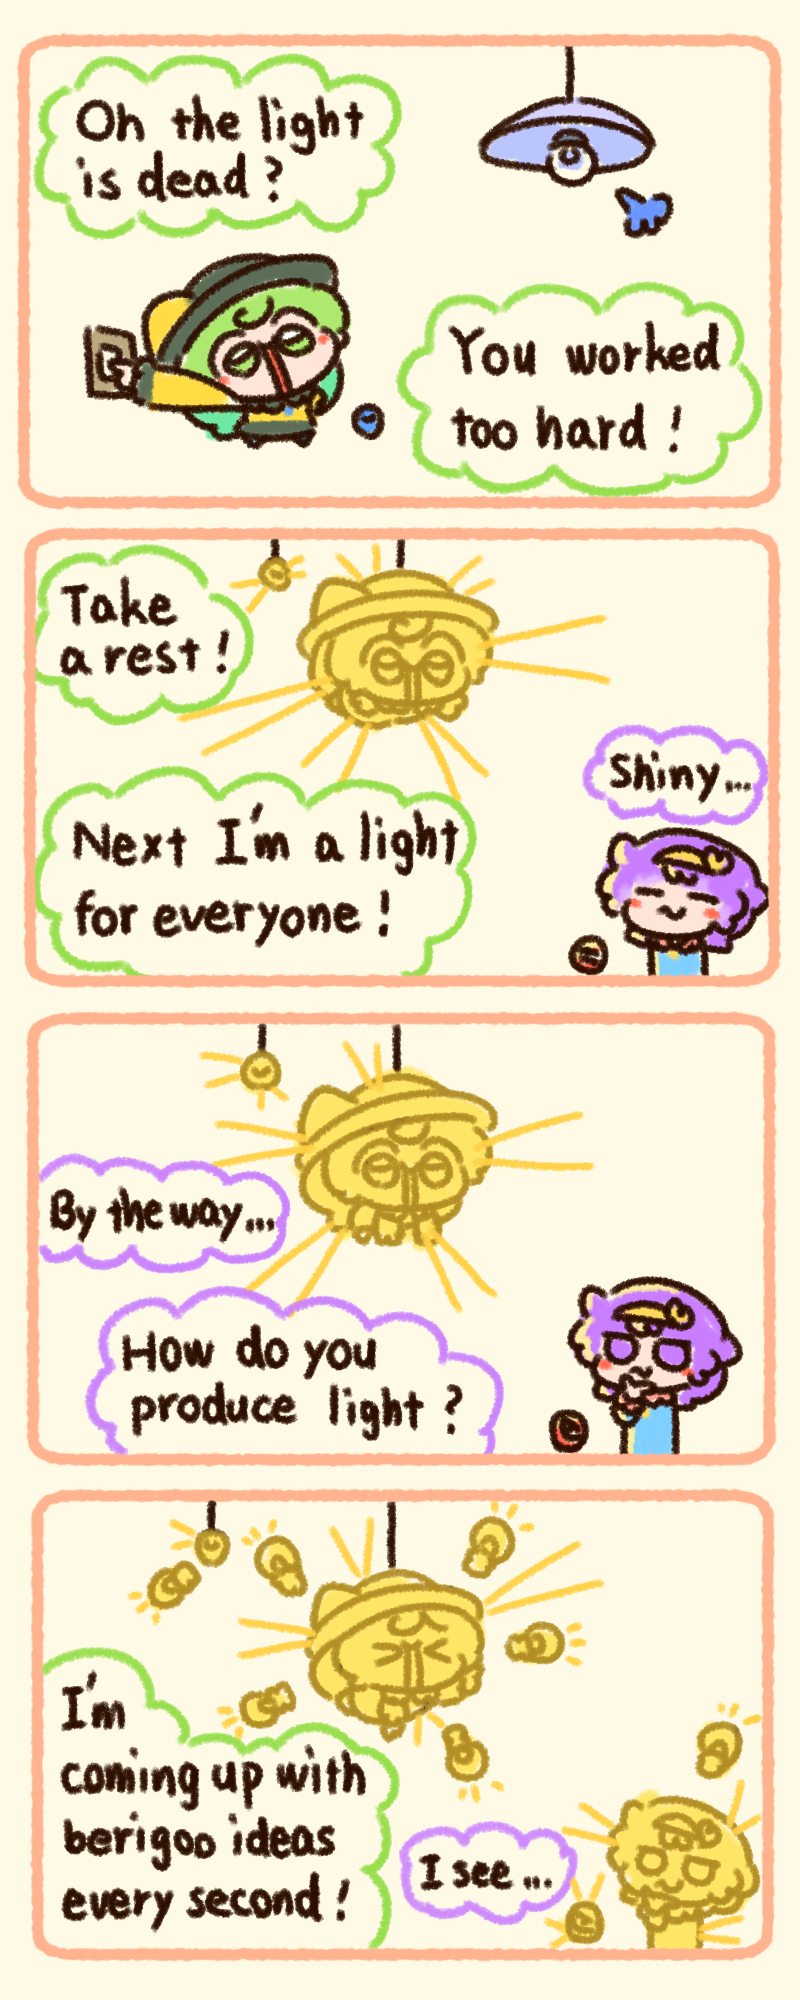 Oh the light
is dead?
You worked
too hard!
Take
a rest!
Shiny...
Next I'm a light
for everyone!
By the way...
How do you
produce light?
I'm
coming up with
berigoo ideas
every second!
I see...